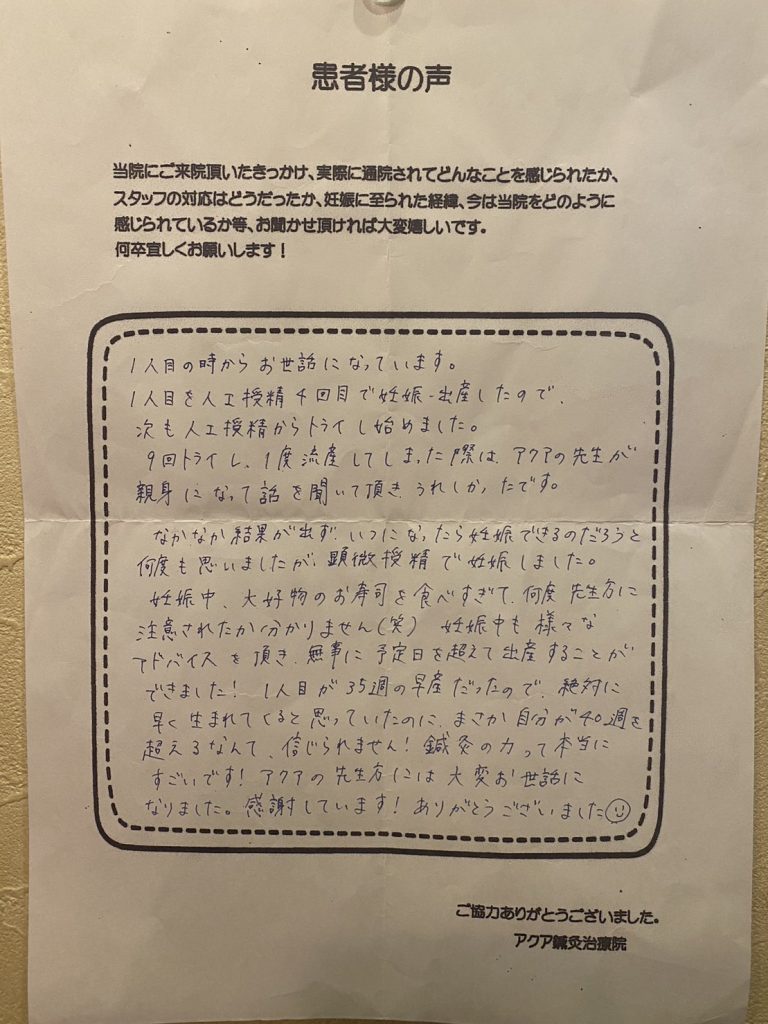 患者様の声
当院にご来院頂いたきっかけ、実際に通院されてどんなことを感じられたか、
スタッフの対応はどうだったか、妊娠に至られた経緯、今は当院をどのように
感じられているか等、お聞かせ頂ければ大変嬉しいです。
何卒宜しくお願いします！
1人目の時からお世話になっています。
1人目を人工授精4回目で妊娠-出産したので、
次も人工授精からトライし始めました。
9回トライし、1度流産してしまった際は、アクアの先生が
親身になって話を聞いて頂き、うれしかったです。
なかなか結果が出ず、いつになったら妊娠できるのだろうと
何度も思いましたが、顕微授精で妊娠しました。
妊娠中、大好物のお寿司を食べすぎて、何度先生方に
注意されたか分かりません(笑) 妊娠中も様々な
アドバイスを頂き、無事に予定日を超えて出産することが
できました！ 1人目が35週の早産だったので、絶対に
早く生まれてくると思っていたのに、まさか自分が40週を
超えるなんて、信じられません！鍼灸の力って本当に
すごいです！アクアの先生方には大変お世話に
なりました。感謝しています！ありがとうございました☺
ご協力ありがとうございました。
アクア鍼灸治療院